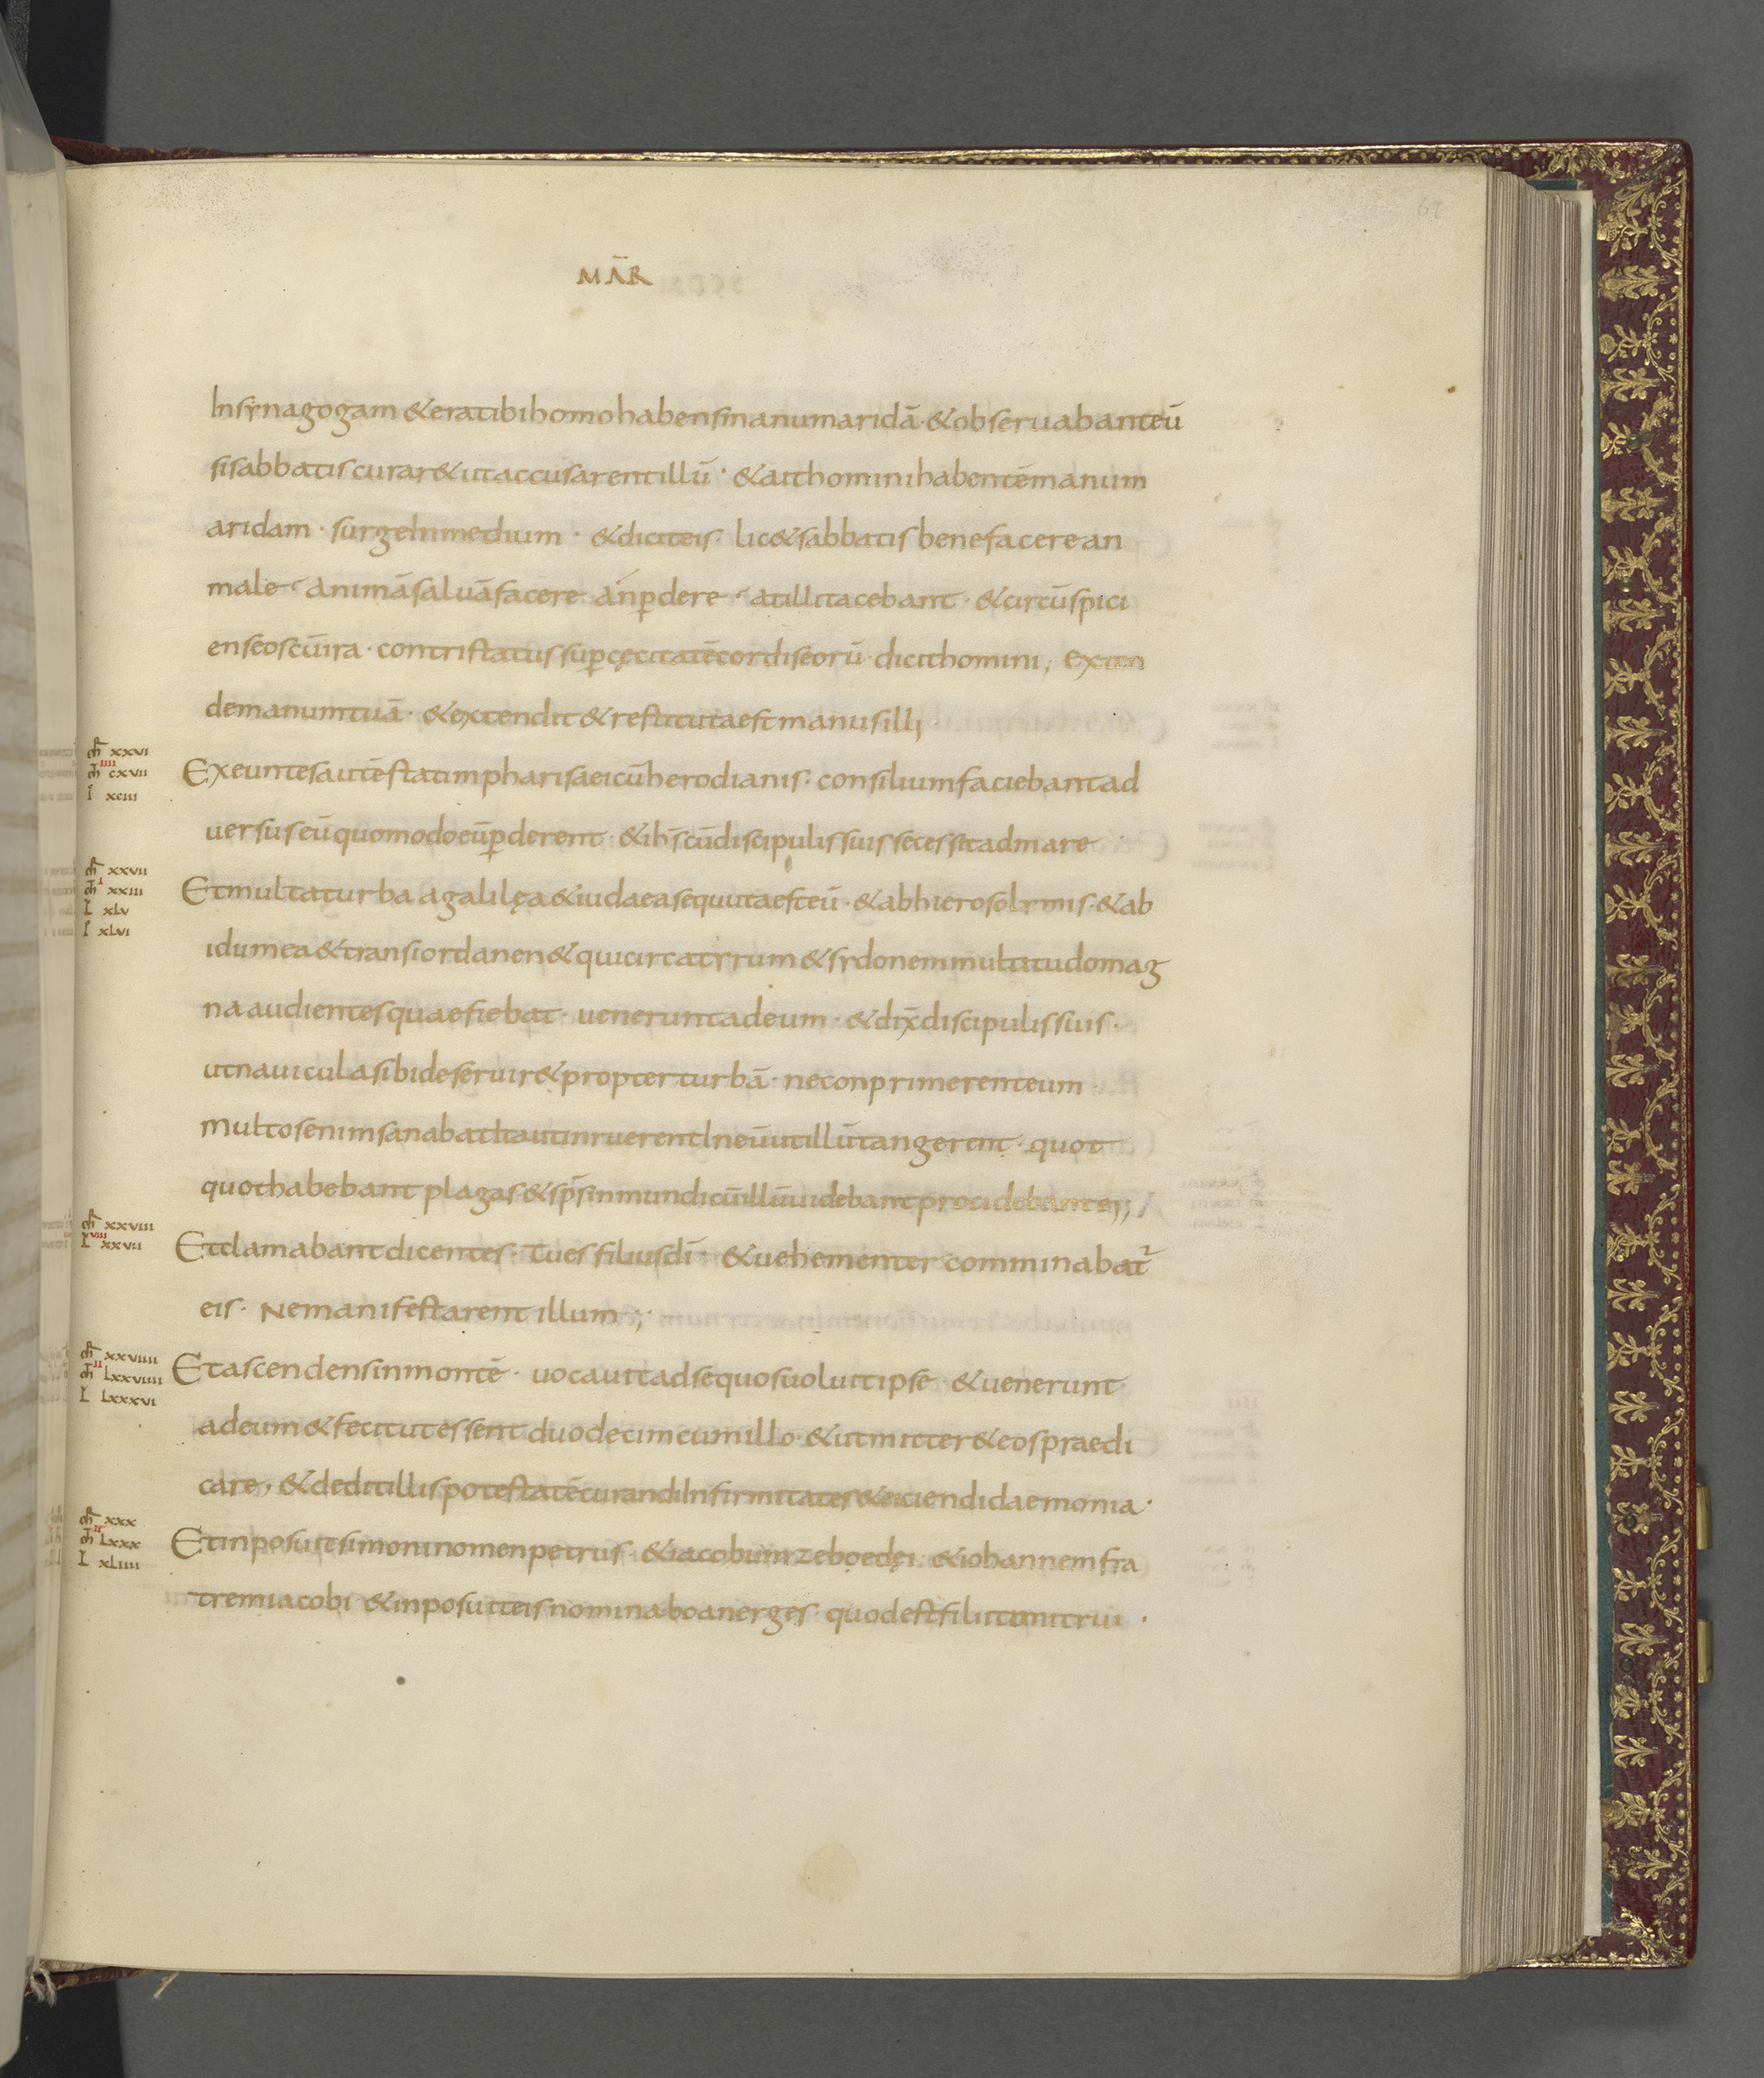 67
MAR̄
In synagogam & erat ibi homo habens manum aridā · & obseruabant eū
si sabbatis curar& ut accusarent illū · & ait homini habentē manum
aridam · surge In medium · & dicit eis · lic& sabbatis bene facere an
male · animā saluā facere an ꝑdere · at illi tacebant · & circūspici
ens eos cū ira · contristatus suꝑ cęcitatē cordis eorū · dicit homini, exten
de manum tuā · & extendit & restituta est manus illi
mr̄ xxvi
Exeuntes autē statim pharisaei cū herodianis · consilium faciebant ad
IIII
m̄ cxvii
I xciii
uersus eū quomodo eū ꝑderent · & ih̄s cū discipulis suis secessit ad mare
mr̄ xxvii
Et multa turba a galilęa & iudaea sequuta est eū · & ab hierosolymis · & ab
I
m̄ xxiii
L xlv
I xlvi
idumea & trans iordanen & qui circa tyrum & sydonem multitudo mag
na audientes quae fiebat · uenerunt ad eum · & dix̄ discipulis suis ·
ut nauicula sibi deseruir& propter turbā · ne conprimerent eum
Multos enim sanabat Ita ut inruerent In eū ut illū tangerent · quot
quot habebant plagas & sp̄s inmundi cū illū uidebant procidebant ei;
mr̄ xxviii
Et clamabant dicentes · tu es filius dī · & uehementer comminabat᷑
VIII
L xxvii
eis · Ne manifestarent illum ;
mr̄ xxviiii
Et ascendens in montē · uocauit ad se quos uoluit ipse · & uenerunt
II
m̄ lxxviiii
L lxxxvi
ad eum & fecit ut essent duodecim cum illo · & ut mitter& eos praedi
care, & dedit illis potestatē curandi Infirmitates & eiciendi daemonia ·
mr̄ xxx
Et inposuit simoni nomen petrus · & iacobum zebędęi · & iohannem fra
II
m̄ lxxx
L xliiii
trem iacobi & inposuit eis nomina boanerges · quod est filii tonitrui ·